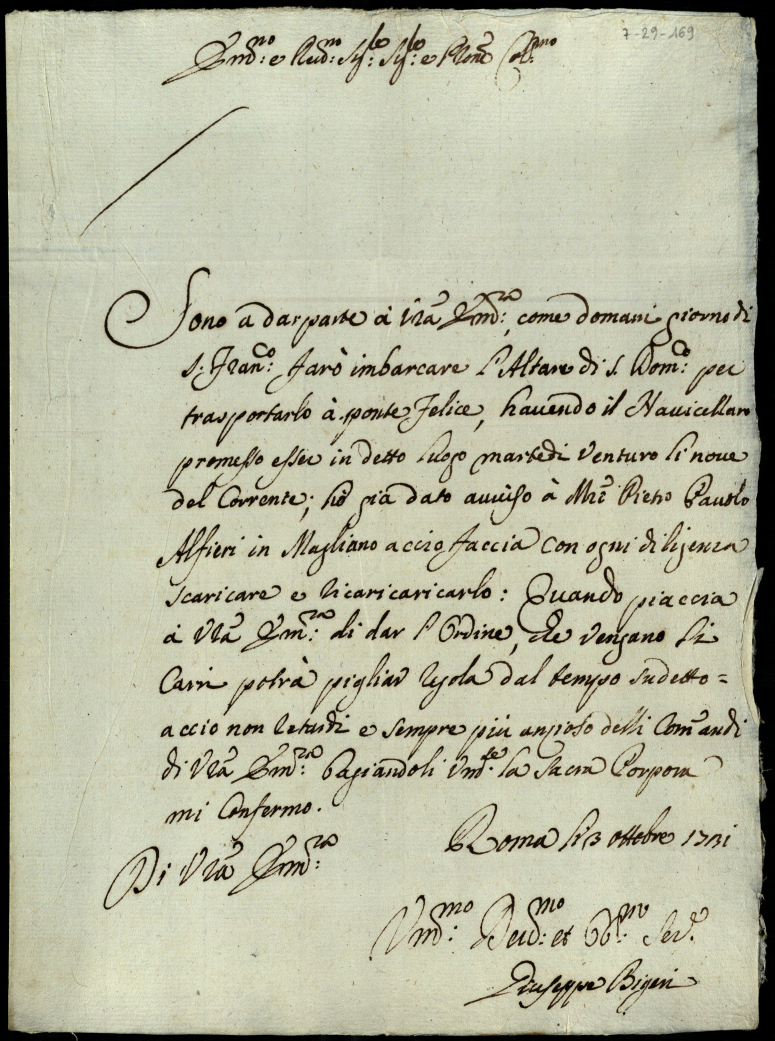 7-29-169
Em̃:mo e Rev:mo Sig:re Sig:re e Pron̄e Col:mo
Sono a dar parte à Vr̃a Em̃:za, come domani giorno di
S: Fran:co farò imbarcare l'Altare di S. Dom:co per
trasportarlo à ponte felice, havendo il Navicellaro
promesso esser in detto luogo martedi venturo li nove
del Corrente; hò già dato avviso à Mr̃ Pietro Pavolo
Alfieri in Magliano accio faccia con ogni diligenza
scaricare e ricaricaricarlo: Quando piaccia
à Vr̃a Em̃:za di dar l'Ordine, che vengano li
Carri potrà pigliar regola dal tempo sudetto=
accio non retardi e sempre più anzioso delli Com̃andi
di Vr̃a Em̃:za Bagiandoli Um:te la Sacra Porpora
mi Confermo.
Roma li 3 ottobre 1731
Di Vr̃a Em̃:za
Um:mo Dev:mo et Ob:mo Ser.e
Giuseppe Bigeri